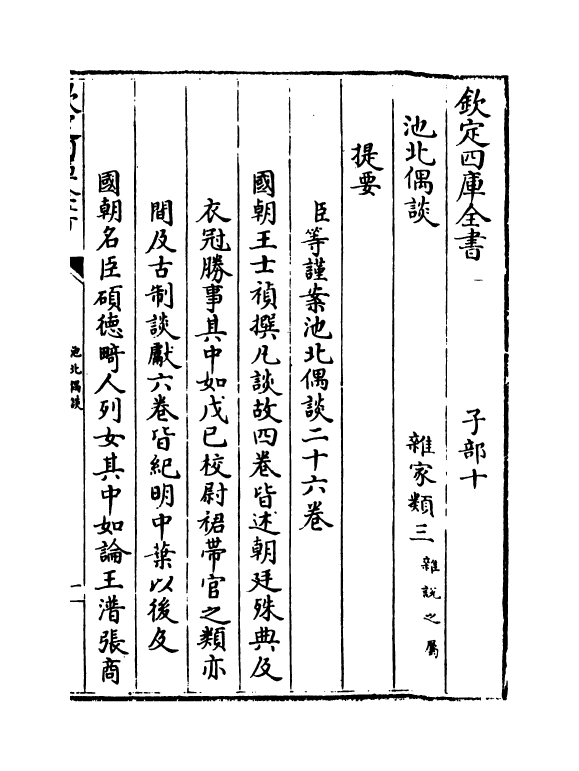 欽定四庫全書　子部十
池北偶談　雜家類三雜說之屬
提要
臣等謹案池北偶談二十六卷
國朝王士禎撰凡談故四卷皆述朝廷殊典及
衣冠勝事其中如戊己校尉裙帶官之類亦
間及古制談獻六卷皆紀明中葉以後及
國朝名臣碩德畸人列女其中如論王潽張商
池北偶談